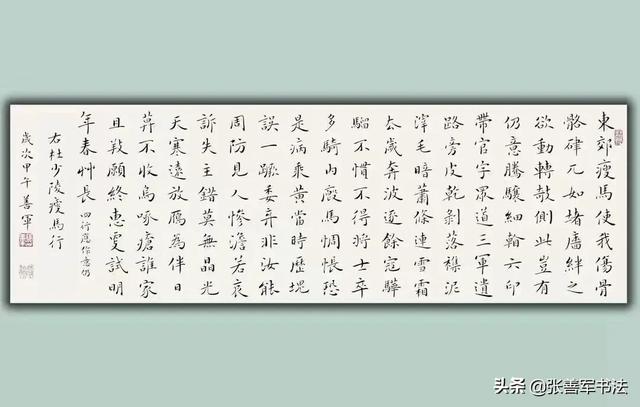 東郊瘦馬使我傷骨
骼硉兀如堵牆絆之
欲動轉欹側此豈有
仍意騰驤細看六印
帶官字眾道三軍遺
路旁皮乾剝落雜泥
滓毛暗蕭條連雪霜
去歲奔波逐餘寇驊
騮不慣不得將士卒
多騎內廄馬惆悵恐
是病乘黃當時歷塊
誤一蹶委棄非汝能
周防見人慘澹若哀
訴失主錯莫無晶光
天寒遠放雁為伴日
暮不收烏啄瘡誰家
且養願終惠更試明
年春艸長 四行應作意仍
右杜少陵瘦馬行
歲次甲午善軍
头条 @张善军书法